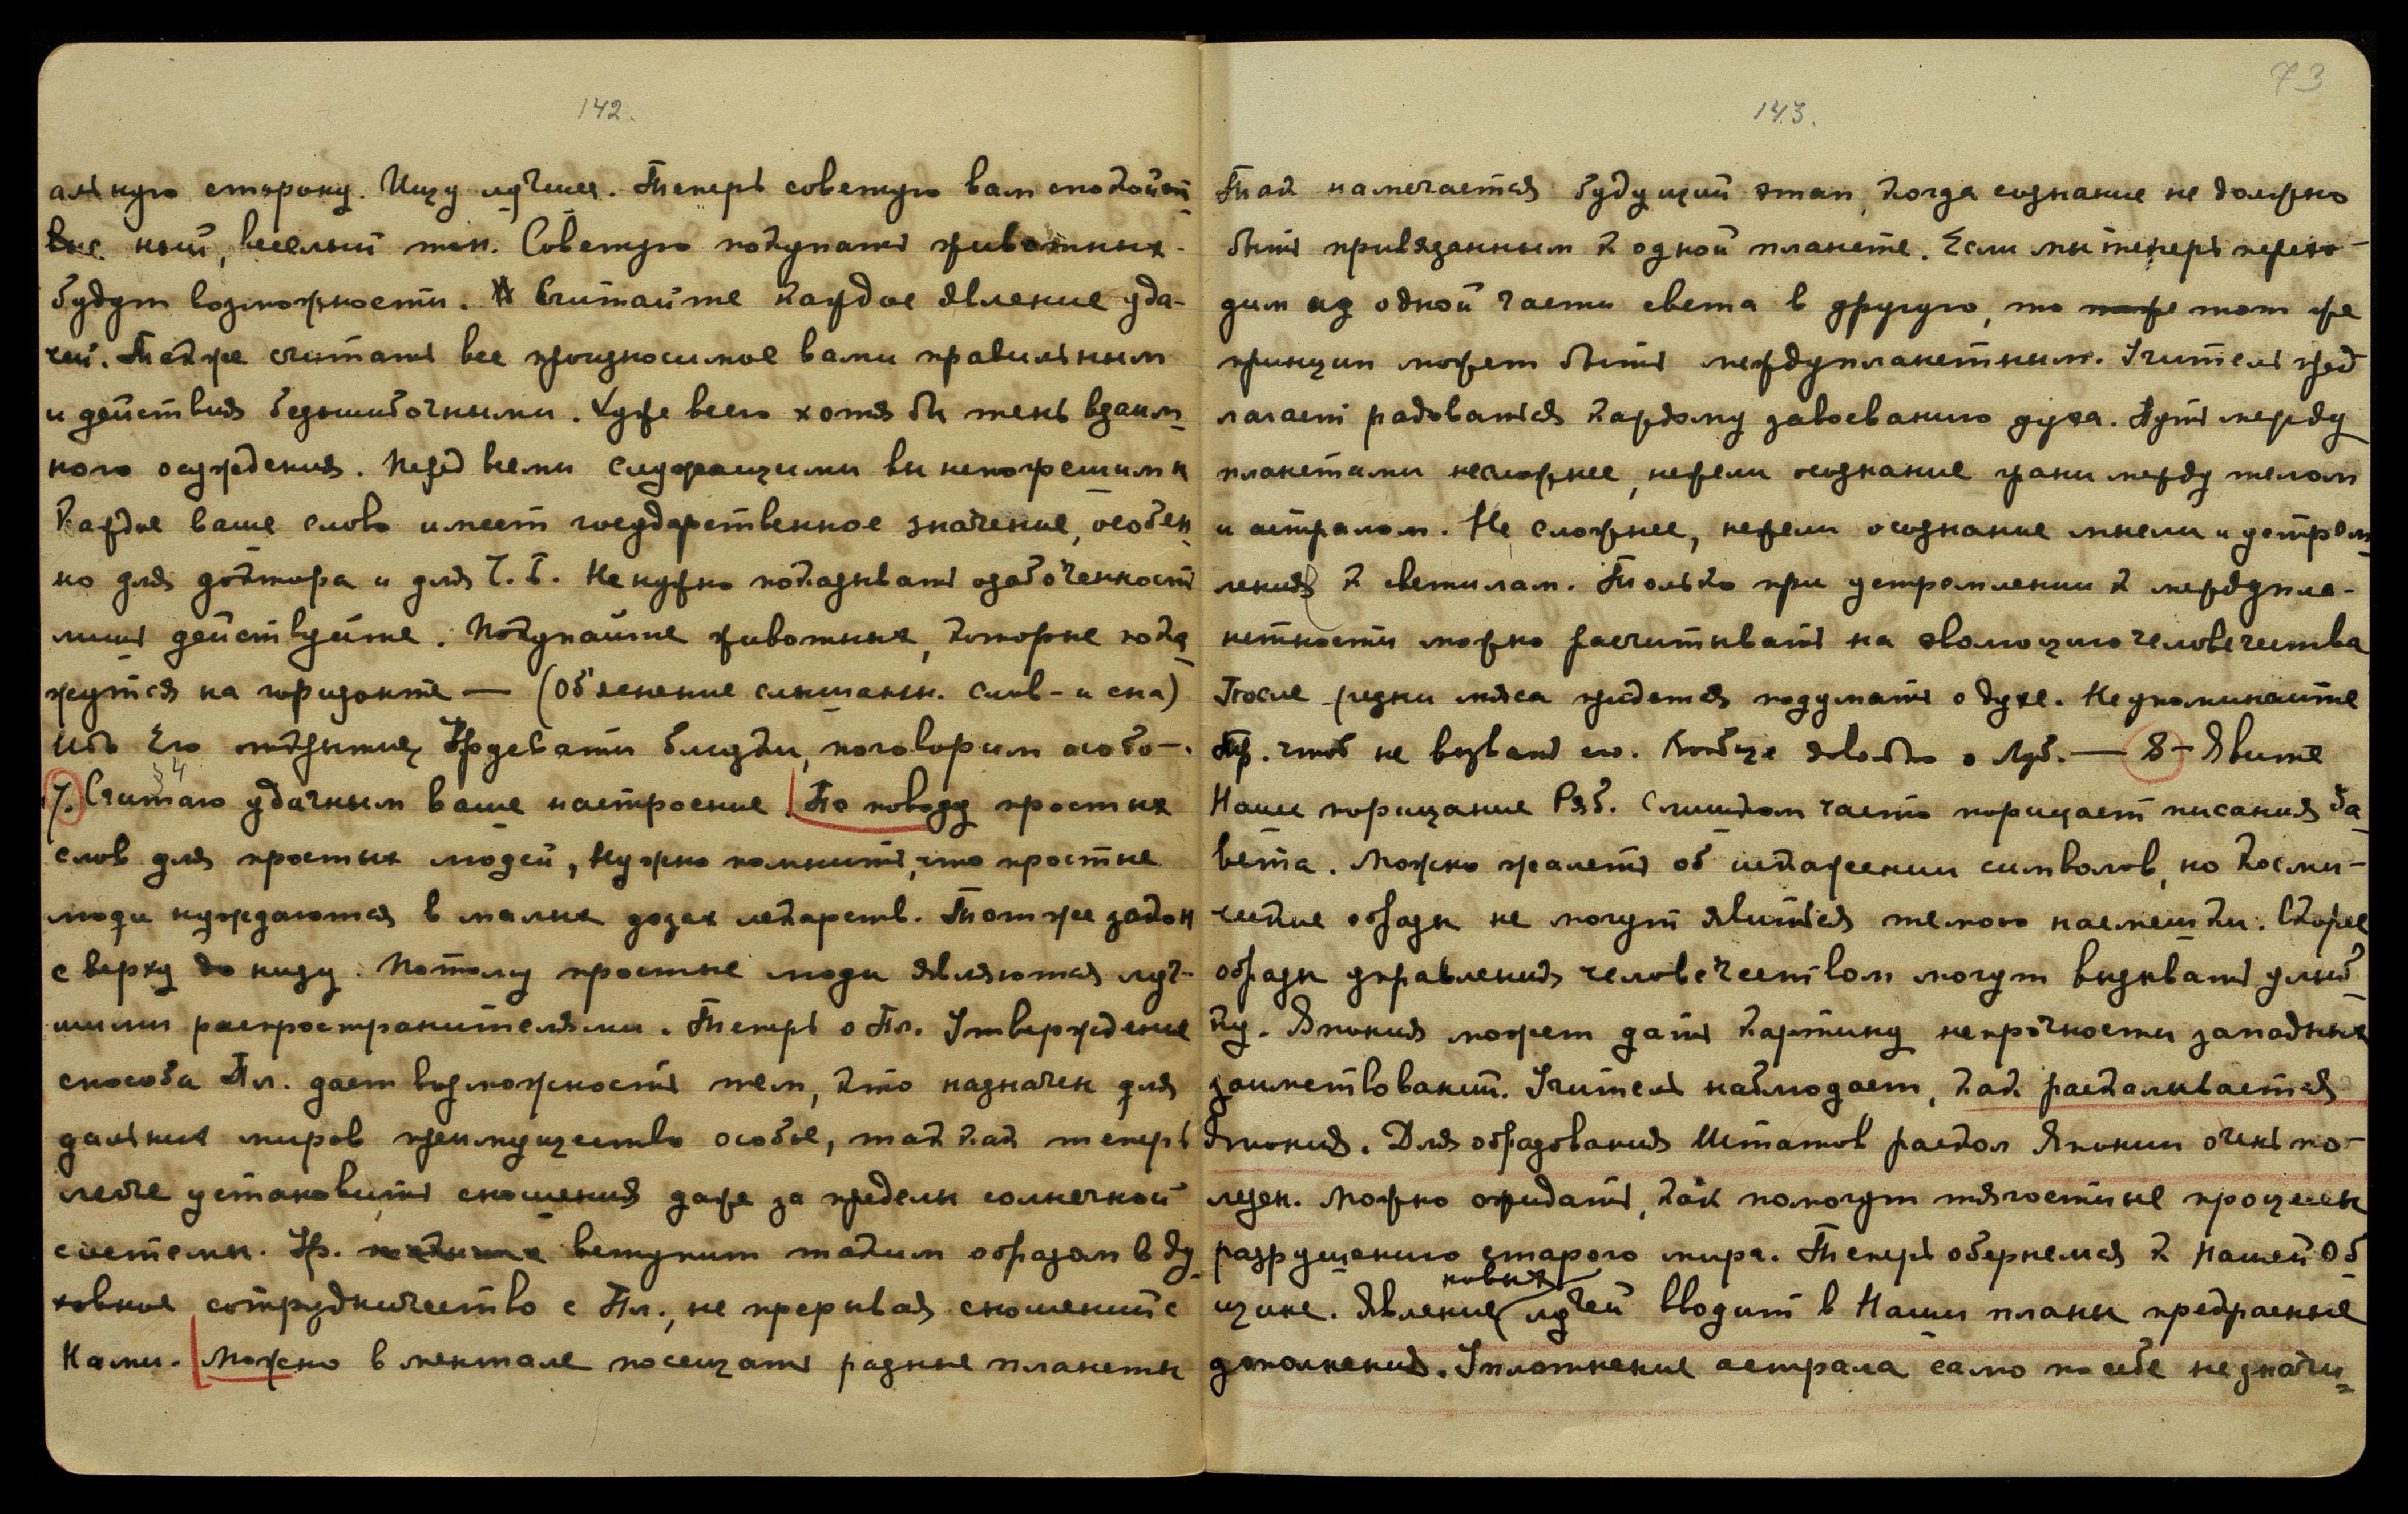 142.
альную сторону. Ищу лучшее. Теперь советую вам спокой
ный, веселый тон. Советую покупать животных-
будут возможности. Считайте каждое явление уда-
чей. Также считать все произносимое вами правильным
и действия безошибочными. Хуже всего хотя бы тень взаим
ного осуждения. Перед всеми служащими вы непогрешимы
Каждое ваше слово имеет государственное значение, особен
но для доктора и для Ч. Б. Не нужно показывать озабоченность
лишь действуйте. Покупайте животных, которые пока
жутся на горизонте — (Об'яснение слышанн. слов - и сна)
Ибо Его открытие близки, поговорим особо-.
§ 4
7. Считаю удачным ваше настроение. По поводу простых
слов для простых людей, нужно помнить, что простые
люди нуждаются в малых дозах лекарств. Тот же закон
с верху до низу. Потому простые люди являются луч-
шими распространителями. Теперь о Пл. Утверждение
способа Пл. дает возможность тем, кто назначен для
дальних миров преимущество особое, так как теперь
легче установить сношения даже за пределы солнечной
системы. Ур. вступит таким образом в ду
ховное сотрудничество с Пл., не прерывая сношений с
Нами. Можно в ментале посещать разные планеты
73
143.
Так намечается будущий этап, когда сознание не должно
быть привязанным к одной планете. Если мы теперь перехо-
дим из одной части света в другую, то тот же
принцип может быть междупланетным. Учитель пред
лагает радоваться каждому завоеванию духа. Путь между
планетами несложнее, нежели осознание грани между телом
и астралом. Не сложнее, нежели осознание мысли и устрем
ления к светилам. Только при устремлении к междупла-
нетности можно расчитывать на эволюцию человечества
После резни мяса придется подумать о духе. Не упоминайте
Тр. чтоб не вызвать его. о Луб. — 8 - Явите
Наше порицание Ряб. Слишком часто порицает писания За
вета. Можно жалеть об искажении символов, но Косми-
ческие образы не могут явиться темою насмешки. Скорее
образы управления человечеством могут вызывать улыб
ку. Япония может дать картину непрочности западных
заимствований. Учитель наблюдает, как раскалывается
Япония. Для образования Штатов раскол Японии очень по-
лезен. Можно ожидать, как помогут тягостные процессы
разрушению старого мира. Теперь обернемся к Нашей Об
щине. Явление новых лучей вводит в Наши планы прекрасные
дополнения. Уплотнение астрала само по себе не значи